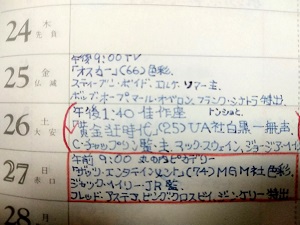 24 木
先負
午後9:00 TV
25 金 「オスカー」(66) 色彩.
仏滅 スティーブン・ボイド、エルケ・ソマー主
ボブ・ホープ、マール・オベロン、フランク・シナトラ 特出
26 土 午後1:40 佳作座
大安 「黄金狂時代」(25) UA社 白黒 無声
C・チャップリン監・主、マック・スウェイン、ジョージア・ヘイ
27 日 午前 9:00 丸の内ピカデリー
「ザッツ・エンタテインメント」(74) MGM社 色彩.
ジャック・ヘイリー・JR 監.
フレッド・アステア、ビング・クロスビイ、ジン・ケリー 特出
28 月